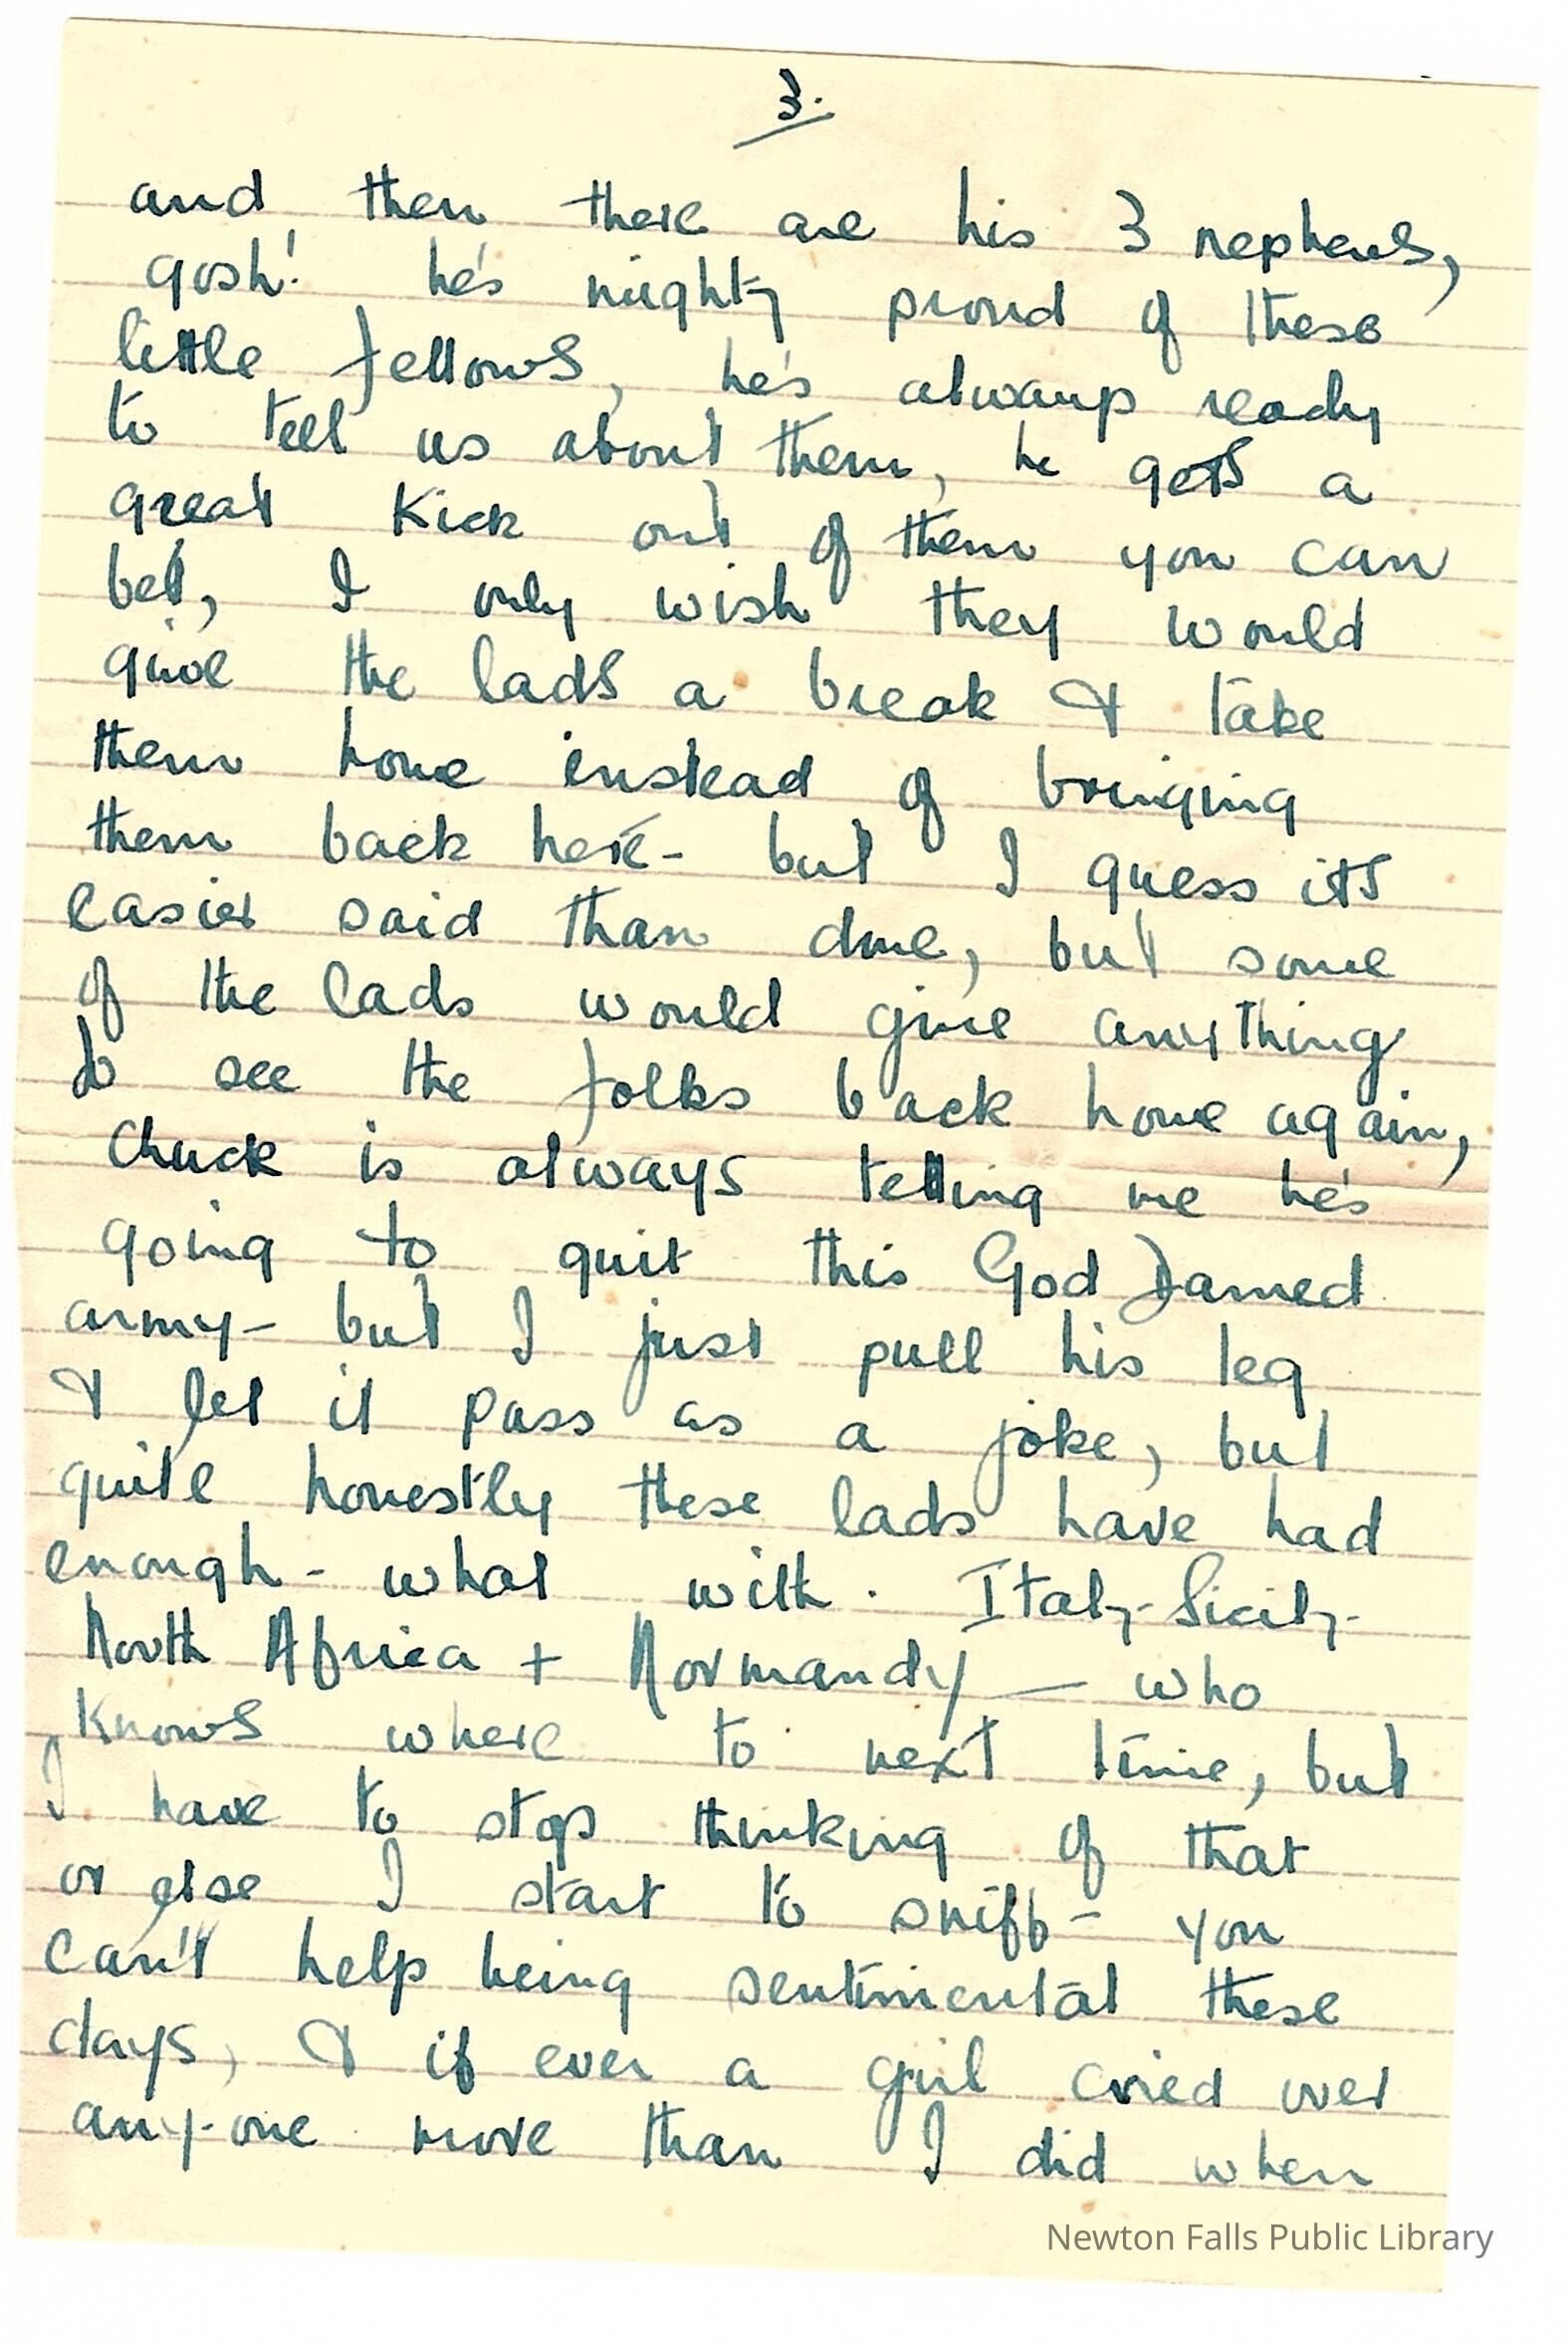 3.
and then there are his 3 nephews,
gosh! he's mighty proud of these
little fellows, he's always ready
to tell us about them, he gets a
great kick out of them you can
bet, I only wish they would
give the lads a break & take
them home instead of bringing
them back here - but I guess its
easier said than done, but some
of the lads would give anything
to see the folks back home again,
Chuck is always telling me he's
going to quit this God Damed
army - but I just pull his leg
& let it pass as a joke, but
quite honestly these lads have had
enough - what with. Italy - Sicily -
North Africa + Normandy — who
knows where to next time, but
I have to stop thinking of that
or else I start to sniff - you
can't help being sentimental these
days, & if ever a girl cried over
any-one more than I did when
Newton Falls Public Library